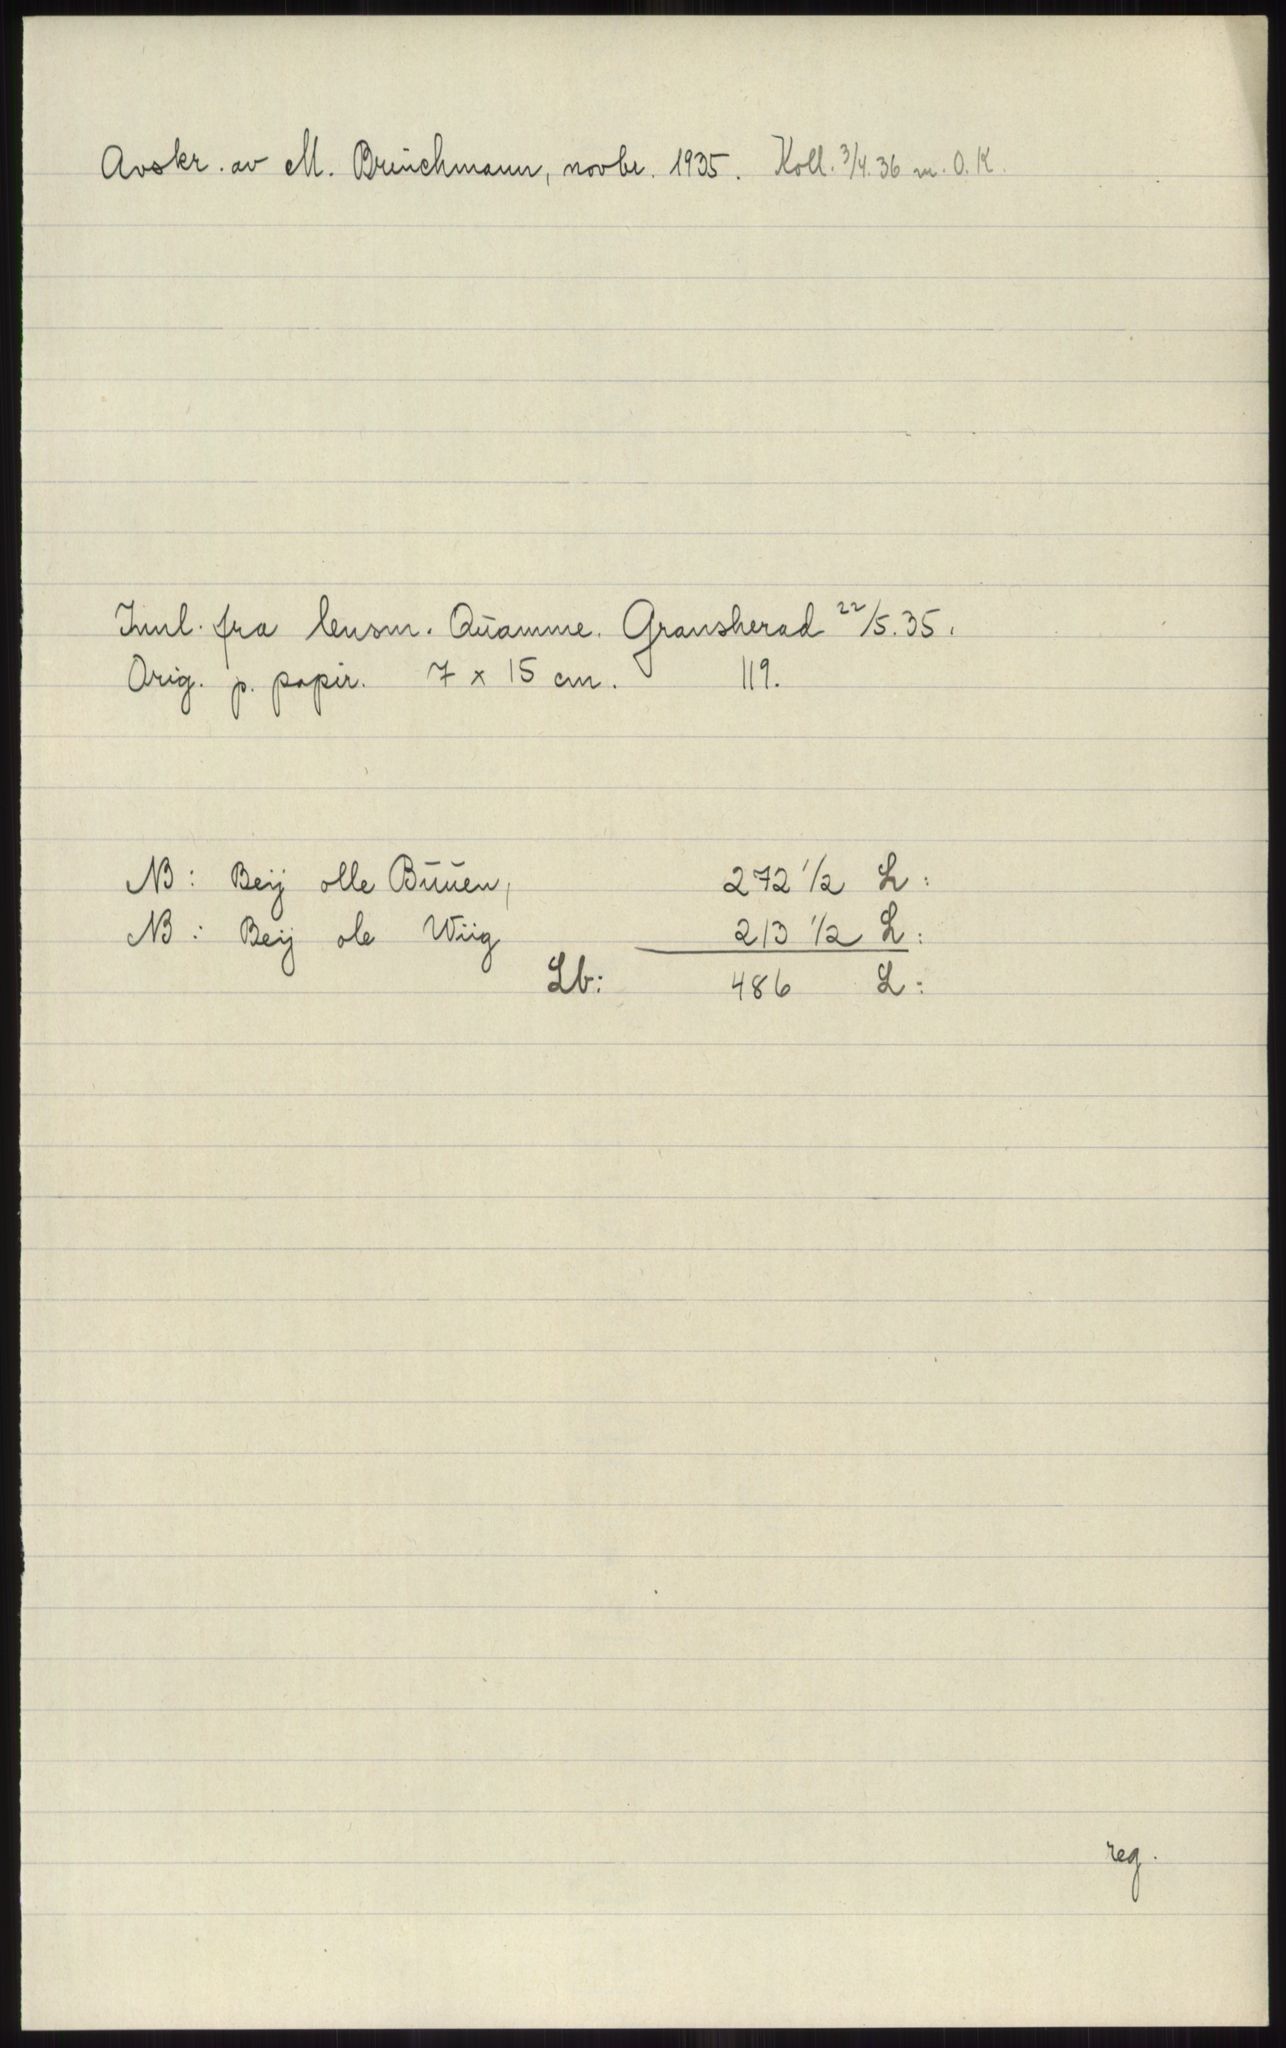 Avskr. av M. Brinchmann, novbr. 1935. Koll. 3/4.36 m. O.K.
Innl. fra lensm. Quamme. Gransherad 22/5.35.
Orig. p. papir. 7 x 15 cm. 119.
NB: Beij olle Buuen, 272 1/2 L:
NB: Beij ole Wiig 213 1/2 L:
Lb: 486 L:
reg.